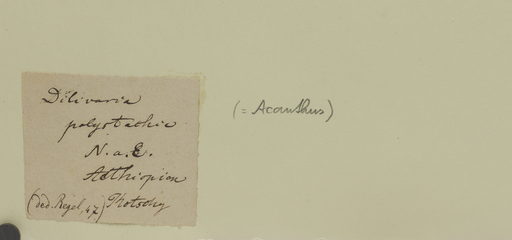 Dilivaria
polystachia
N. a. E.
Aethiopien
(ded. Regel, 47) Kotschy
(= Acanthus)